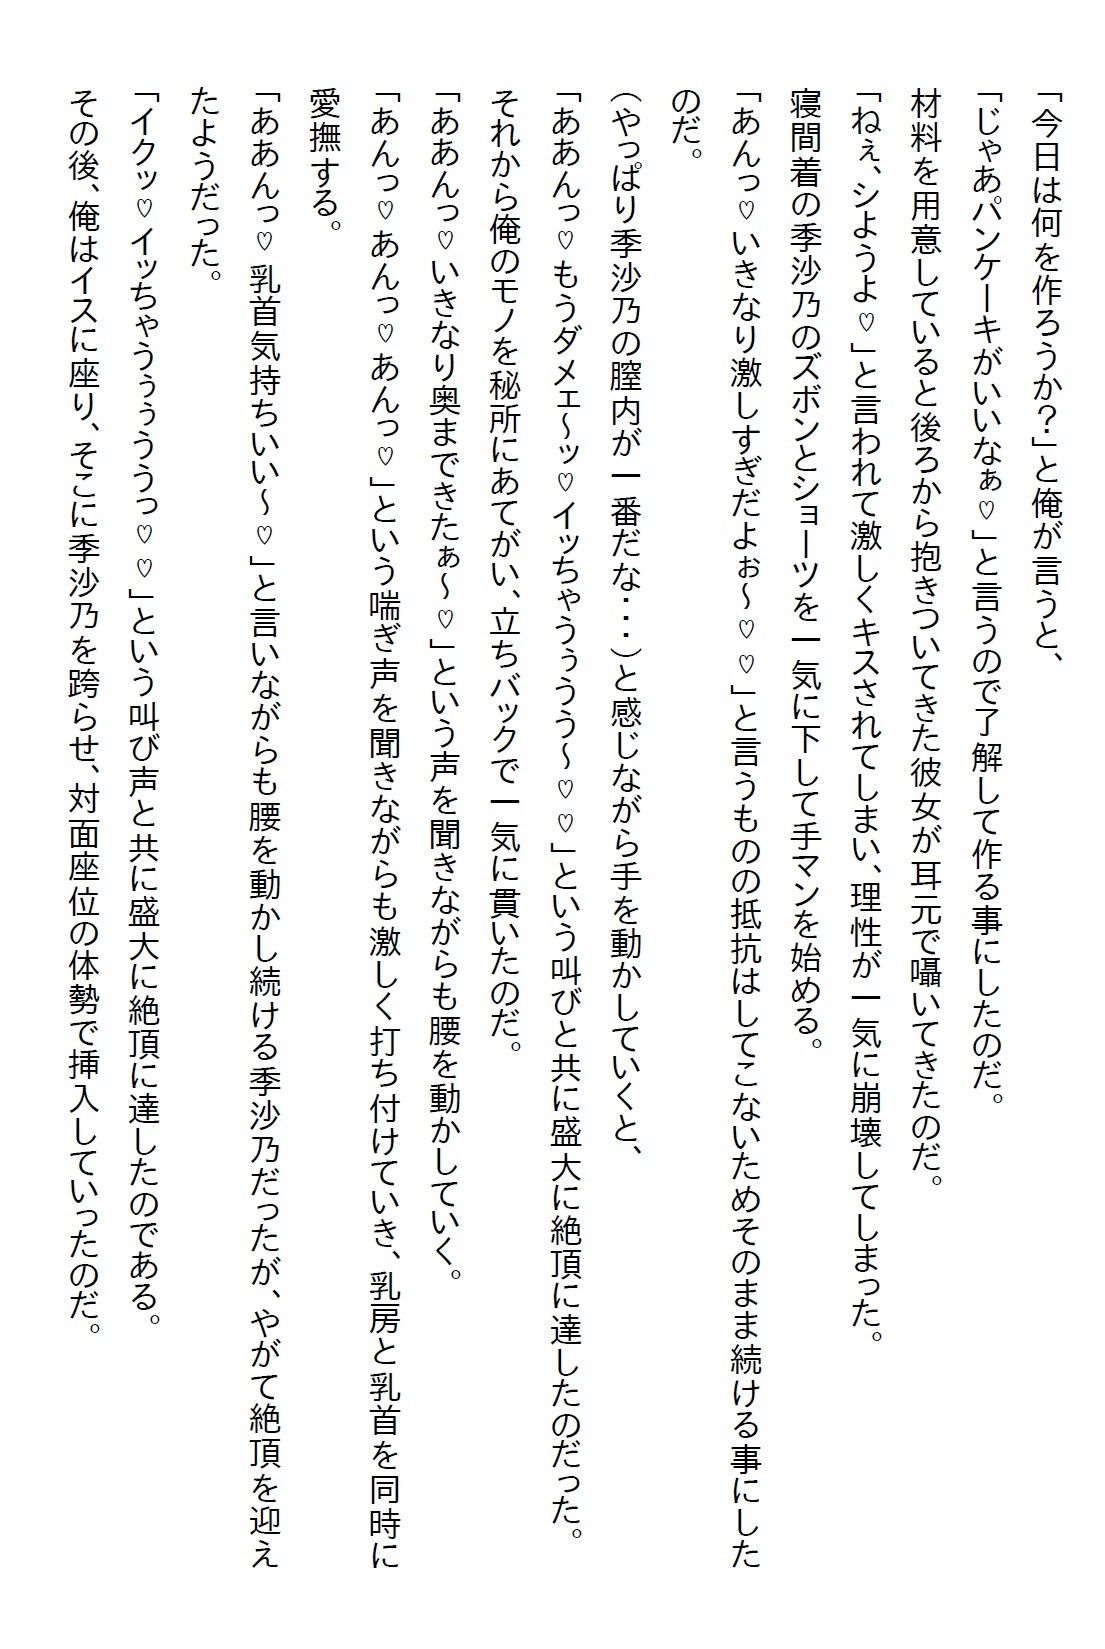 「今日は何を作ろうか?」と俺が言うと、
「じゃあパンケーキがいいなぁ♡」と言うので了解して作る事にしたのだ。
材料を用意していると後ろから抱きついてきた彼女が耳元で囁いてきたのだ。
「ねぇ、シようよ♡」と言われて激しくキスされてしまい、理性が一気に崩壊してしまった。
寝間着の季沙乃のズボンとショーツを一気に下して手マンを始める。
「あんっ♡いきなり激しすぎだよぉ～♡♡」と言うものの抵抗はしてこないためそのまま続ける事にした
のだ。
(やっぱり季沙乃の膣内が一番だな・・・)と感じながら手を動かしていくと、
「ああんっ♡もうダメェ～ッ♡イッちゃうぅうう～♡♡」という叫びと共に盛大に絶頂に達したのだった。
それから俺のモノを秘所にあてがい、立ちバックで一気に貫いたのだ。
「ああんっ♡いきなり奥まできたぁ～♡」という声を聞きながらも腰を動かしていく。
「あんっ♡あんっ♡あんっ♡」という喘ぎ声を聞きながらも激しく打ち付けていき、乳房と乳首を同時に
愛撫する。
「ああんっ♡乳首気持ちいい～♡」と言いながらも腰を動かし続ける季沙乃だったが、やがて絶頂を迎え
たようだった。
「イクッ♡イッちゃうぅぅううっ♡♡」という叫び声と共に盛大に絶頂に達したのである。
その後、俺はイスに座り、そこに季沙乃を跨らせ、対面座位の体勢で挿入していったのだ。